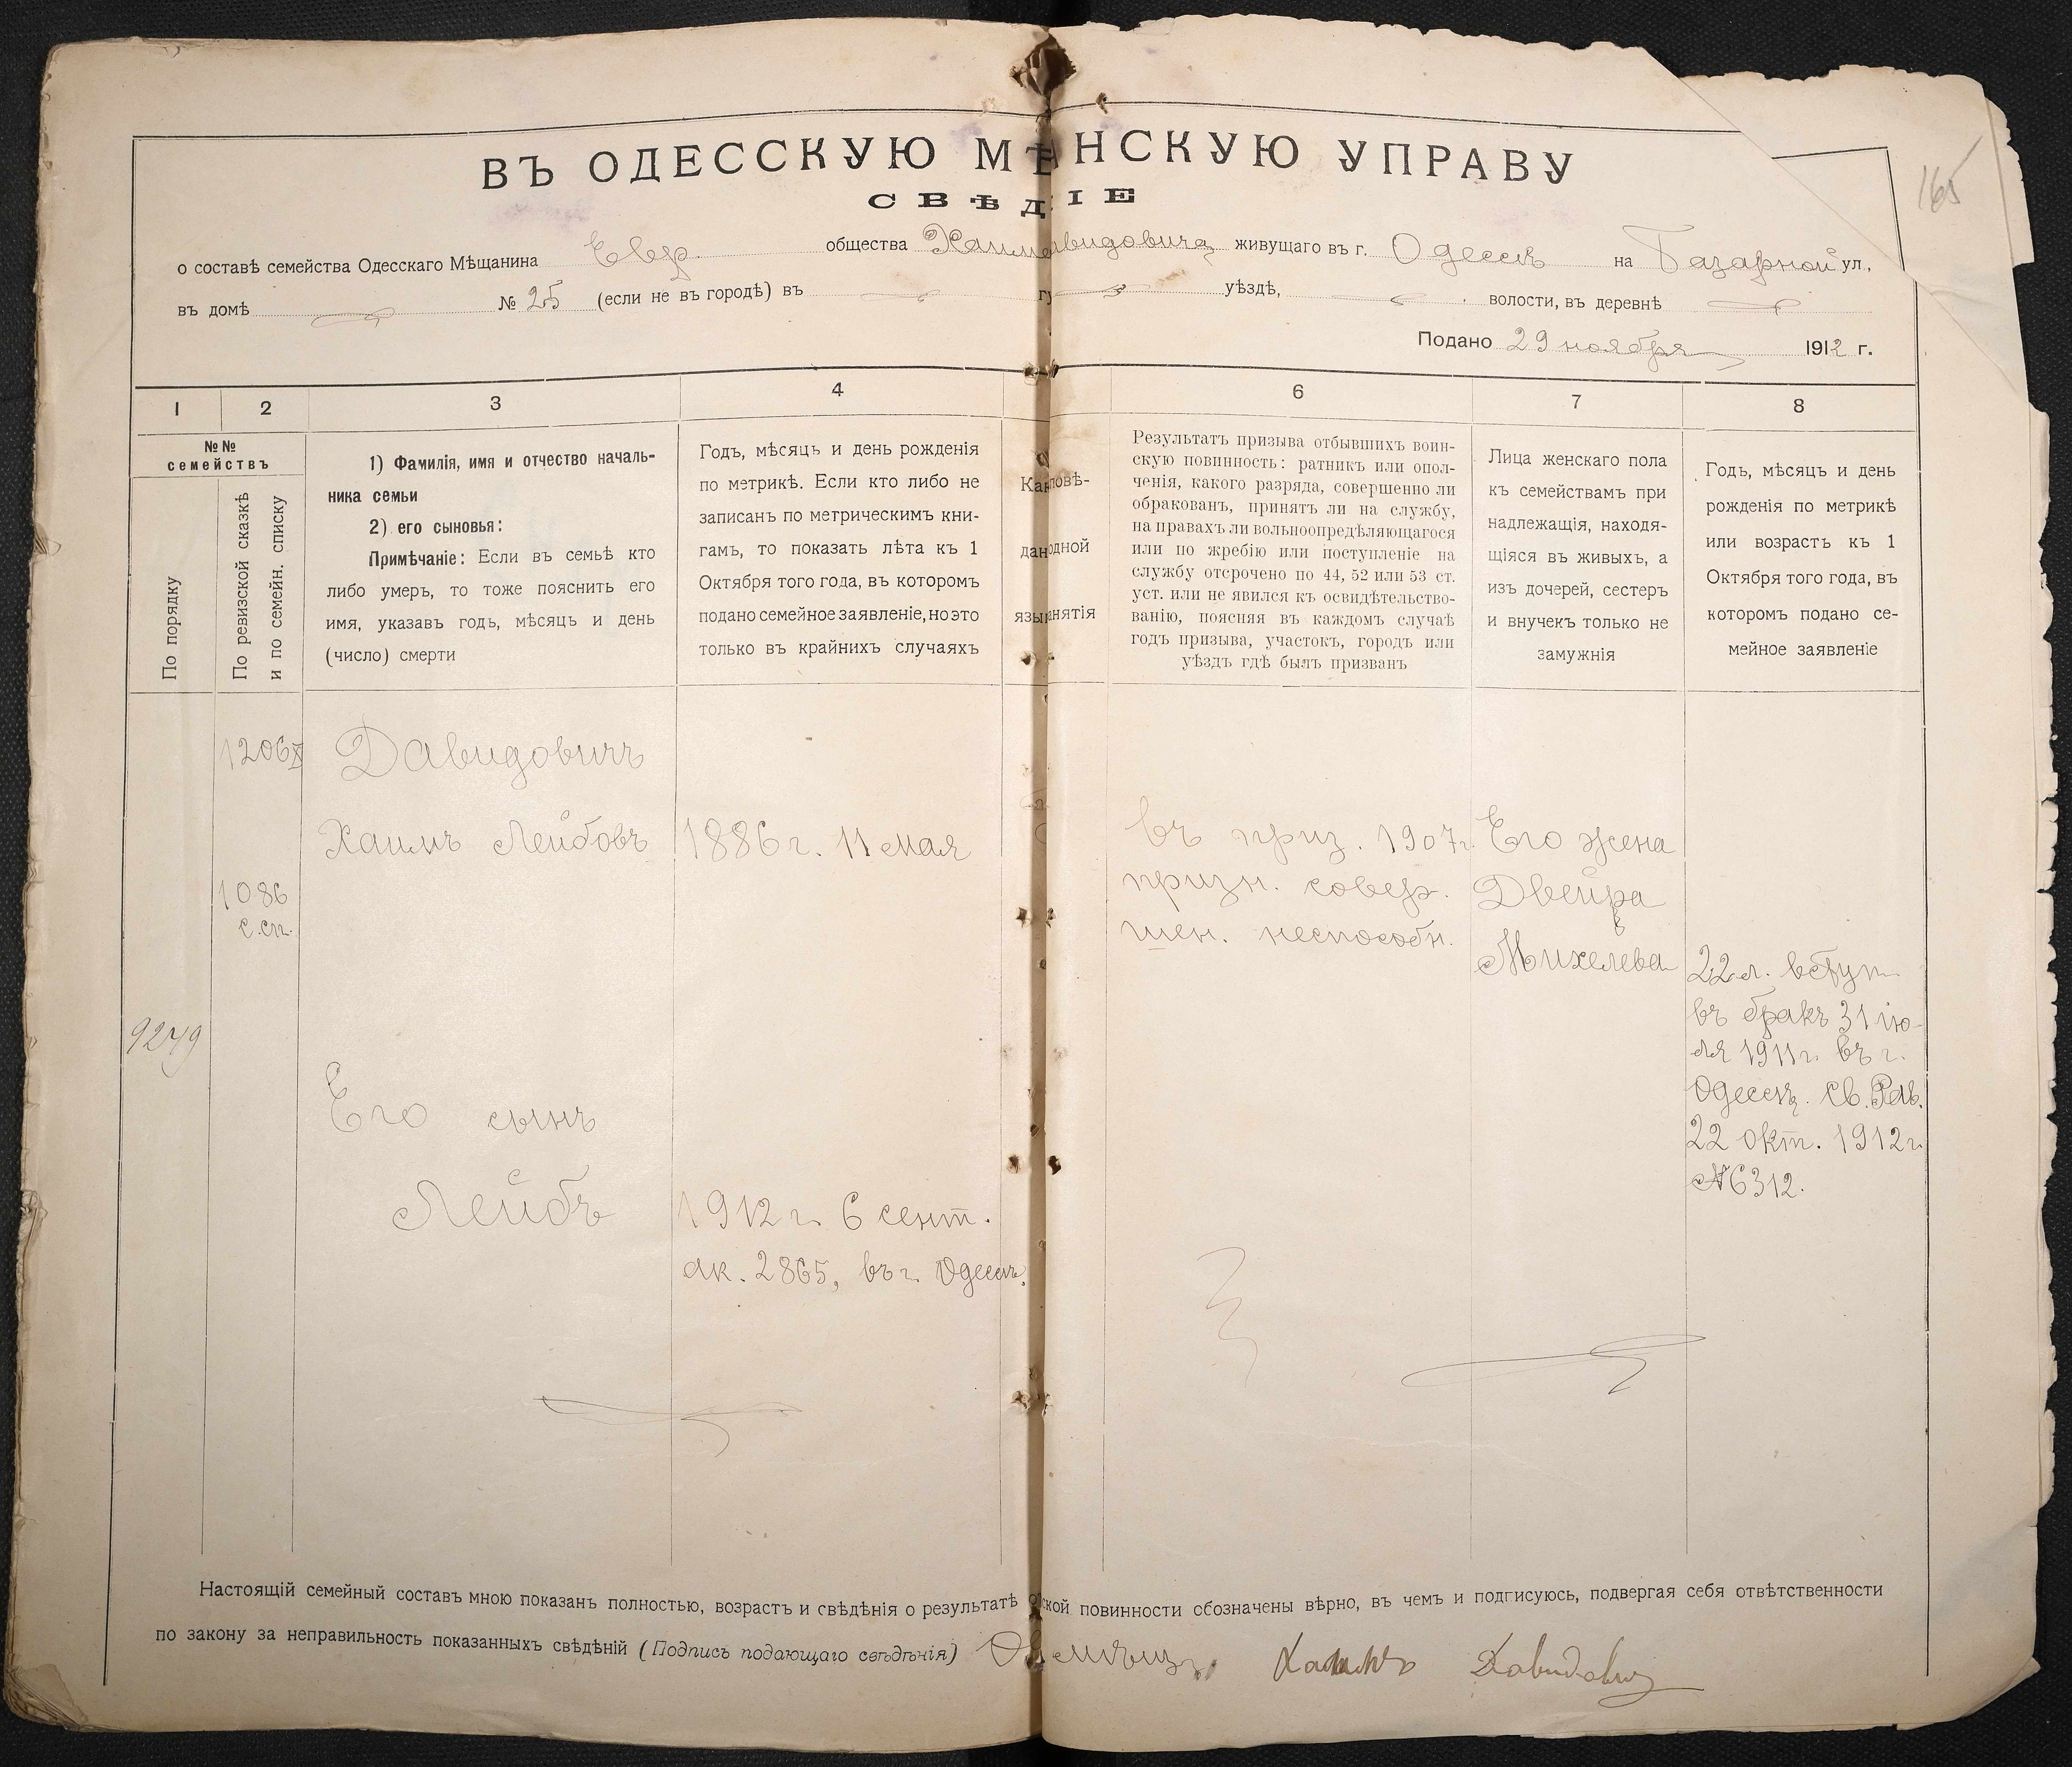 ВЪ ОДЕССКУЮ МѢ НСКУЮ УПРАВУ
СВѢД ІЕ
165
о составѣ семейства Одесскаго Мѣщанина Евр. общества Хаим авидовича живущаго въ г. Одессѣ на Базарной ул.,
въ домѣ № 25 (если не въ городѣ) въ гу уѣздѣ, волости, въ деревнѣ
Подано 29 ноября 1912 г.
1 2 3 4 6 7 8
№№
семействъ
По порядку
По ревизской сказкѣ
и по семейн. списку
1) Фамилія, имя и отчество началь-
ника семьи
2) его сыновья:
Примѣчаніе: Если въ семьѣ кто
либо умеръ, то тоже пояснить его
имя, указавъ годъ, мѣсяцъ и день
(число) смерти
Годъ, мѣсяцъ и день рожденія
по метрикѣ. Если кто либо не
записанъ по метрическимъ кни-
гамъ, то показать лѣта къ 1
Октября того года, въ которомъ
подано семейное заявленіе, но это
только въ крайнихъ случаяхъ
Ка повѣ-
дан одной
язы анятія
Результатъ призыва отбывшихъ воин-
скую повинность: ратникъ или опол-
ченія, какого разряда, совершенно ли
обракованъ, принятъ ли на службу,
на правахъ ли вольноопредѣляющагося
или по жребію или поступленіе на
службу отсрочено по 44, 52 или 53 ст.
уст. или не явился къ освидѣтельство-
ванію, поясняя въ каждомъ случаѣ
годъ призыва, участокъ, городъ или
уѣздъ гдѣ былъ призванъ
Лица женскаго пола
къ семействамъ при
надлежащія, находя-
щіяся въ живыхъ, а
изъ дочерей, сестеръ
и внучекъ только не
замужнія
Годъ, мѣсяцъ и день
рожденія по метрикѣ
или возрастъ къ 1
Октября того года, въ
которомъ подано се-
мейное заявленіе
9249
1206
1086
с.сп.
Давидовичъ
Хаимъ Лейбовъ
Его сынъ
Лейбъ
1886 г. 11 мая
1912 г. 6 сент.
ак. 2865, въ г. Одессѣ.
въ приз. 1907г.
призн. совер.
шен. неспособн.
Его жена
Двейра
Михелева
22 л. вступ.
въ бракъ 31 ію-
ля 1911 г. въ г.
Одессѣ. Св. Рав.
22 окт. 1912 г.
№6312.
Настоящій семейный составъ мною показанъ полностью, возрастъ и свѣдѣнія о результатѣ о ской повинности обозначены вѣрно, въ чемъ и подписуюсь, подвергая себя отвѣтственности
по закону за неправильность показанныхъ свѣдѣній (Подпись подающаго свѣдѣнія) Од мѣщ. Хаимъ Давидович